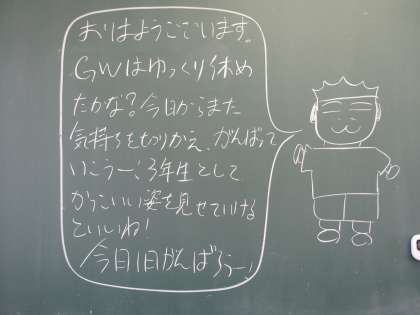 おはようございます。
GWはゆっくり休め
たかな?今日からまた
気持ちをきりかえ、がんばって
いこうー!3年生として
かっこいい姿を見せていける
といいね!
今日1日がんばろうー!